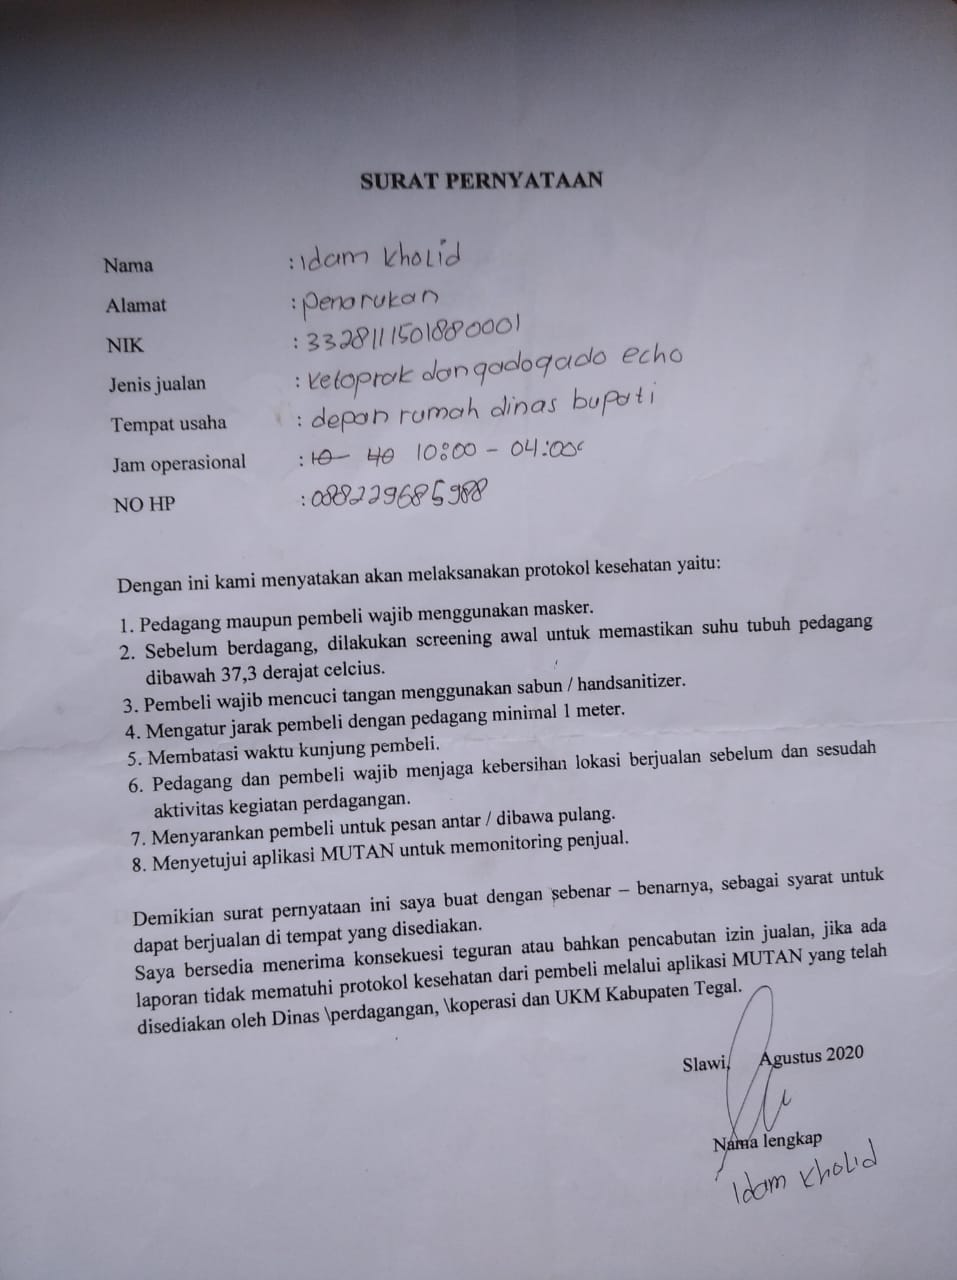 SURAT PERNYATAAN
Nama : Idam Kholid
Alamat : penarukan
NIK : 3328111501880001
Jenis jualan : ketoprak dan gadogado echo
Tempat usaha : depan rumah dinas bupati
Jam operasional : 10:00 - 04:00
NO HP : 088229685988
Dengan ini kami menyatakan akan melaksanakan protokol kesehatan yaitu:
1. Pedagang maupun pembeli wajib menggunakan masker.
2. Sebelum berdagang, dilakukan screening awal untuk memastikan suhu tubuh pedagang
dibawah 37,3 derajat celcius.
3. Pembeli wajib mencuci tangan menggunakan sabun / handsanitizer.
4. Mengatur jarak pembeli dengan pedagang minimal 1 meter.
5. Membatasi waktu kunjung pembeli.
6. Pedagang dan pembeli wajib menjaga kebersihan lokasi berjualan sebelum dan sesudah
aktivitas kegiatan perdagangan.
7. Menyarankan pembeli untuk pesan antar / dibawa pulang.
8. Menyetujui aplikasi MUTAN untuk memonitoring penjual.
Demikian surat pernyataan ini saya buat dengan sebenar – benarnya, sebagai syarat untuk
dapat berjualan di tempat yang disediakan.
Saya bersedia menerima konsekuesi teguran atau bahkan pencabutan izin jualan, jika ada
laporan tidak mematuhi protokol kesehatan dari pembeli melalui aplikasi MUTAN yang telah
disediakan oleh Dinas \perdagangan, \koperasi dan UKM Kabupaten Tegal.
Slawi, Agustus 2020
Nama lengkap
Idam Kholid